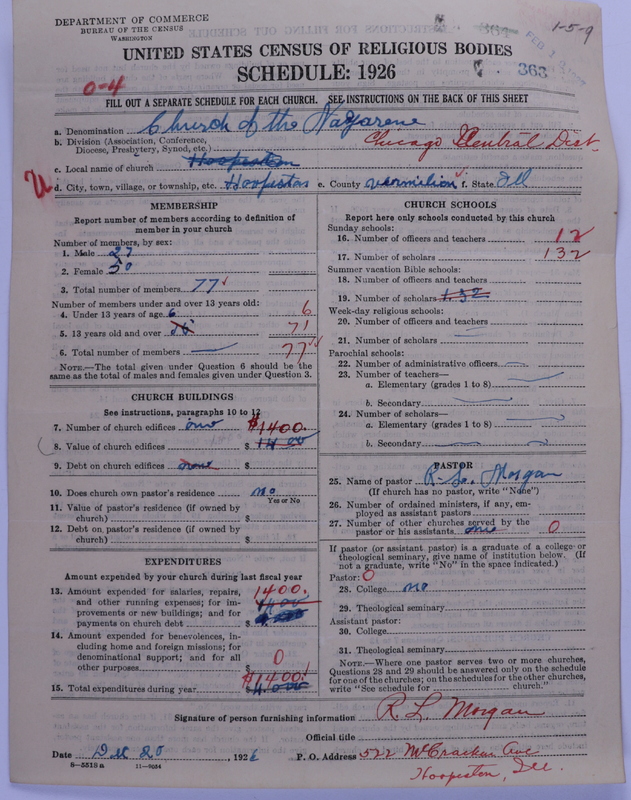 DEPARTMENT OF COMMERCE
BUREAU OF THE CENSUS
WASHINGTON
1-5-9
UNITED STATES CENSUS OF RELIGIOUS BODIES
SCHEDULE: 1926
363
0-4
FILL OUT A SEPARATE SCHEDULE FOR EACH CHURCH. SEE INSTRUCTIONS ON THE BACK OF THIS SHEET
a. Denomination Church of the Nazarene
b. Division (Association, Conference, Diocese, Presbytery, Synod, etc.) Chicago Central Dist.
c. Local name of church Hoopeston
d. City, town, village, or township, etc. Hoopeston e. County Vermilion f. State Ill
MEMBERSHIP
Report number of members according to definition of
member in your church
Number of members, by sex:
1. Male 27
2. Female 50
3. Total number of members 77
Number of members under and over 13 years old:
4. Under 13 years of age 6 6
5. 13 years old and over 71
6. Total number of members 77
NOTE.—The total given under Question 6 should be
same as the total of males and females given under Question 3.
CHURCH BUILDINGS
See instructions, paragraphs 10 to 12
7. Number of church edifices one
$1400.
8. Value of church edifices $ 14.00
9. Debt on church edifices none $
10. Does church own pastor's residence no
Yes or No
11. Value of pastor's residence (if owned by
church) $
12. Debt on pastor's residence (if owned by
church) $
EXPENDITURES
Amount expended by your church during last fiscal year
13. Amount expended for salaries, repairs, 1400.
and other running expenses; for im-
provements or new buildings; and for
payments on church debt $
14. Amount expended for benevolences, in-
cluding home and foreign missions; for
denominational support; and for all 0
other purposes $
$1400.
15. Total expenditures during year $
CHURCH SCHOOLS
Report here only schools conducted by this church
Sunday schools:
16. Number of officers and teachers 12
17. Number of scholars 132
Summer vacation Bible schools:
18. Number of officers and teachers
19. Number of scholars 132
Week-day religious schools:
20. Number of officers and teachers
21. Number of scholars
Parochial schools:
22. Number of administrative officers
23. Number of teachers—
a. Elementary (grades 1 to 8)
b. Secondary
24. Number of scholars—
a. Elementary (grades 1 to 8)
b. Secondary
PASTOR
25. Name of pastor R. L. Morgan
(If church has no pastor, write "None")
26. Number of ordained ministers, if any, em-
ployed as assistant pastors
27. Number of other churches served by the
pastor or his assistants 0
If pastor (or assistant pastor) is a graduate of a college or
theological seminary, give name of institution below. (If
not a graduate, write "No" in the space indicated.)
Pastor: 0
28. College no
29. Theological seminary
Assistant pastor:
30. College
31. Theological seminary
NOTE.—Where one pastor serves two or more churches,
Questions 28 and 29 should be answered only on the schedule
for one of the churches; on the schedules for the other churches,
write "See schedule for church."
Signature of person furnishing information R. L. Morgan
Official title
Date 20, 1926 P. O. Address 522 McCracken Ave
Hoopeston, Ill.
8-5518a 11-9034